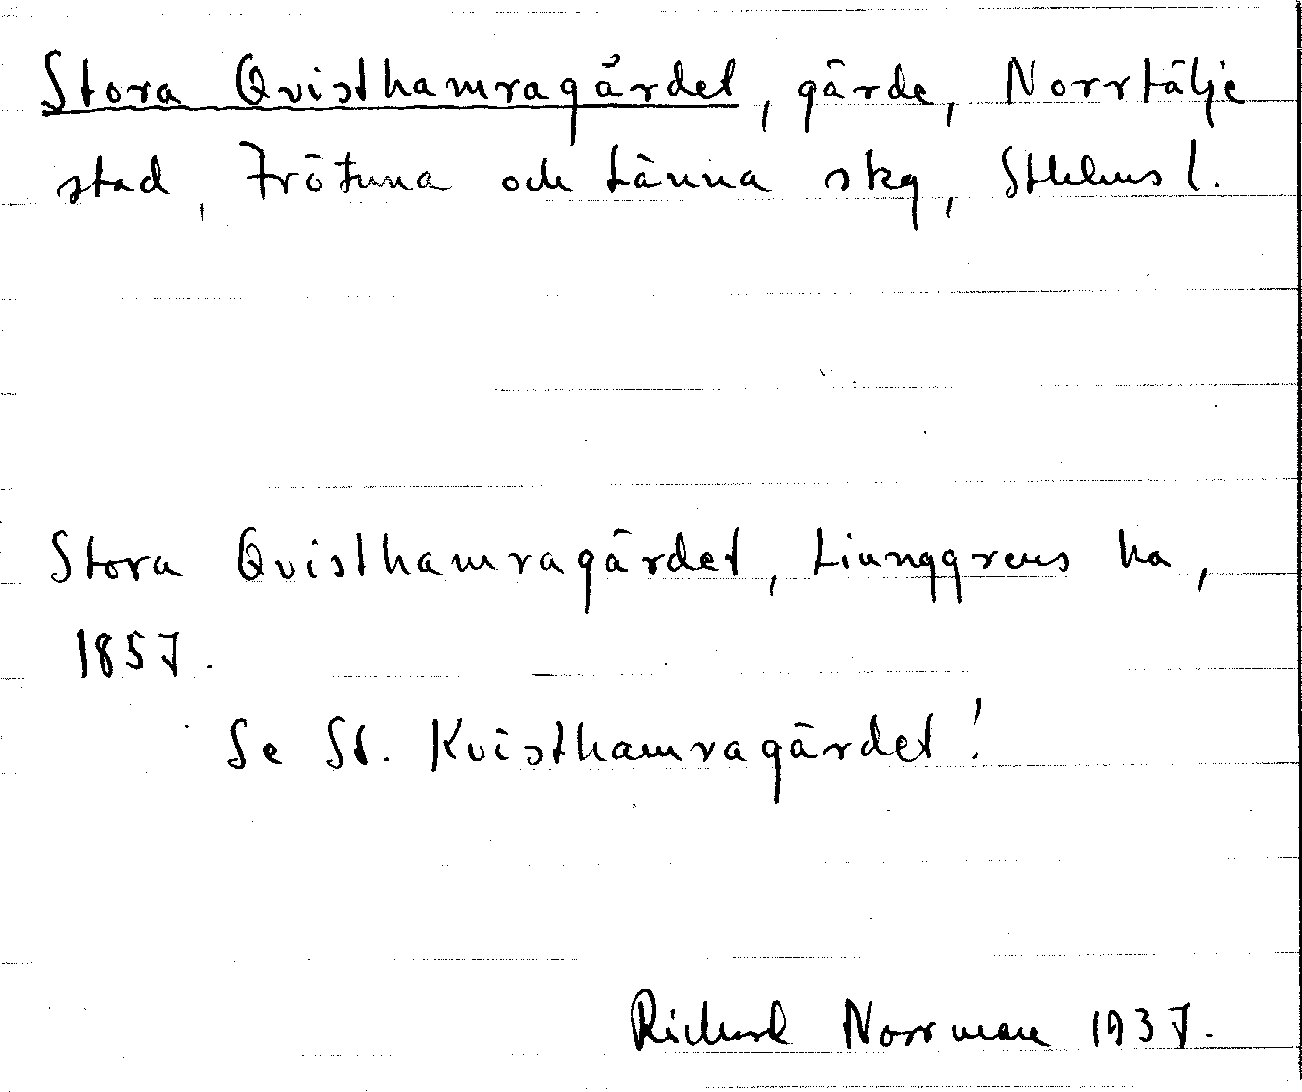 Stora Qvisthamragärdet, gärde, Norrtälje
stad, Frötuna och Länna skg, Sthlms l.
Stora Qvisthamragärdet, Liunggrens ka,
1857.
Se St. Kvisthamragärdet!
Richard Norrman 1937.